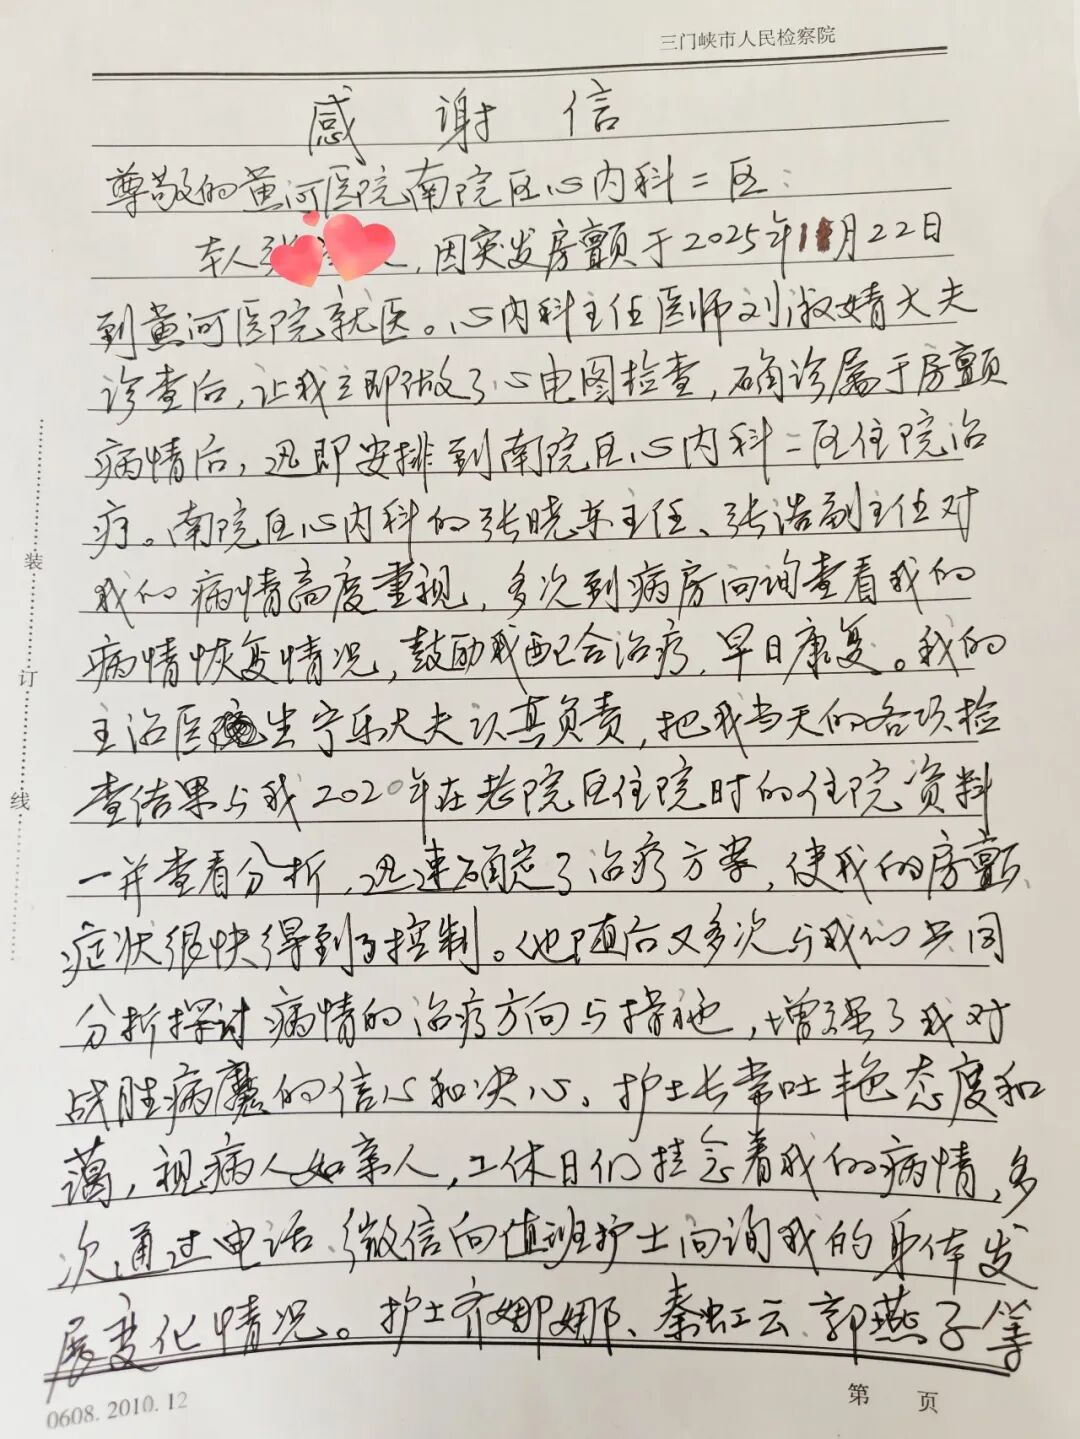 三门峡市人民检察院
感谢信
尊敬的黄河医院南院区心内科二区:
本人张,因突发房颤于2025年1月22日
到黄河医院就医。心内科主任医师刘淑婧大夫
诊查后,让我立即做了心电图检查,确诊属于房颤
病情后,迅即安排到南院区心内科二区住院治
疗。南院区心内科的张晓东主任、张浩副主任对
我的病情高度重视,多次到病房问询查看我的
病情恢复情况,鼓励我配合治疗,早日康复。我的
主治医生宁乐大夫认真负责,把我当天的各项检
查结果与我2020年在老院区住院时的住院资料
一并查看分析,迅速确定了治疗方案,使我的房颤
症状很快得到了控制。他随后又多次与我们共同
分析探讨病情的治疗方向与措施,增强了我对
战胜病魔的信心和决心。护士长常吐艳态度和
蔼,视病人如亲人,工休日仍挂念着我的病情,多
次通过电话、微信向值班护士问询我的身体发
展变化情况。护士齐娜娜、秦虹云、郭燕子等
0608.2010.12
第 页
装
订
线